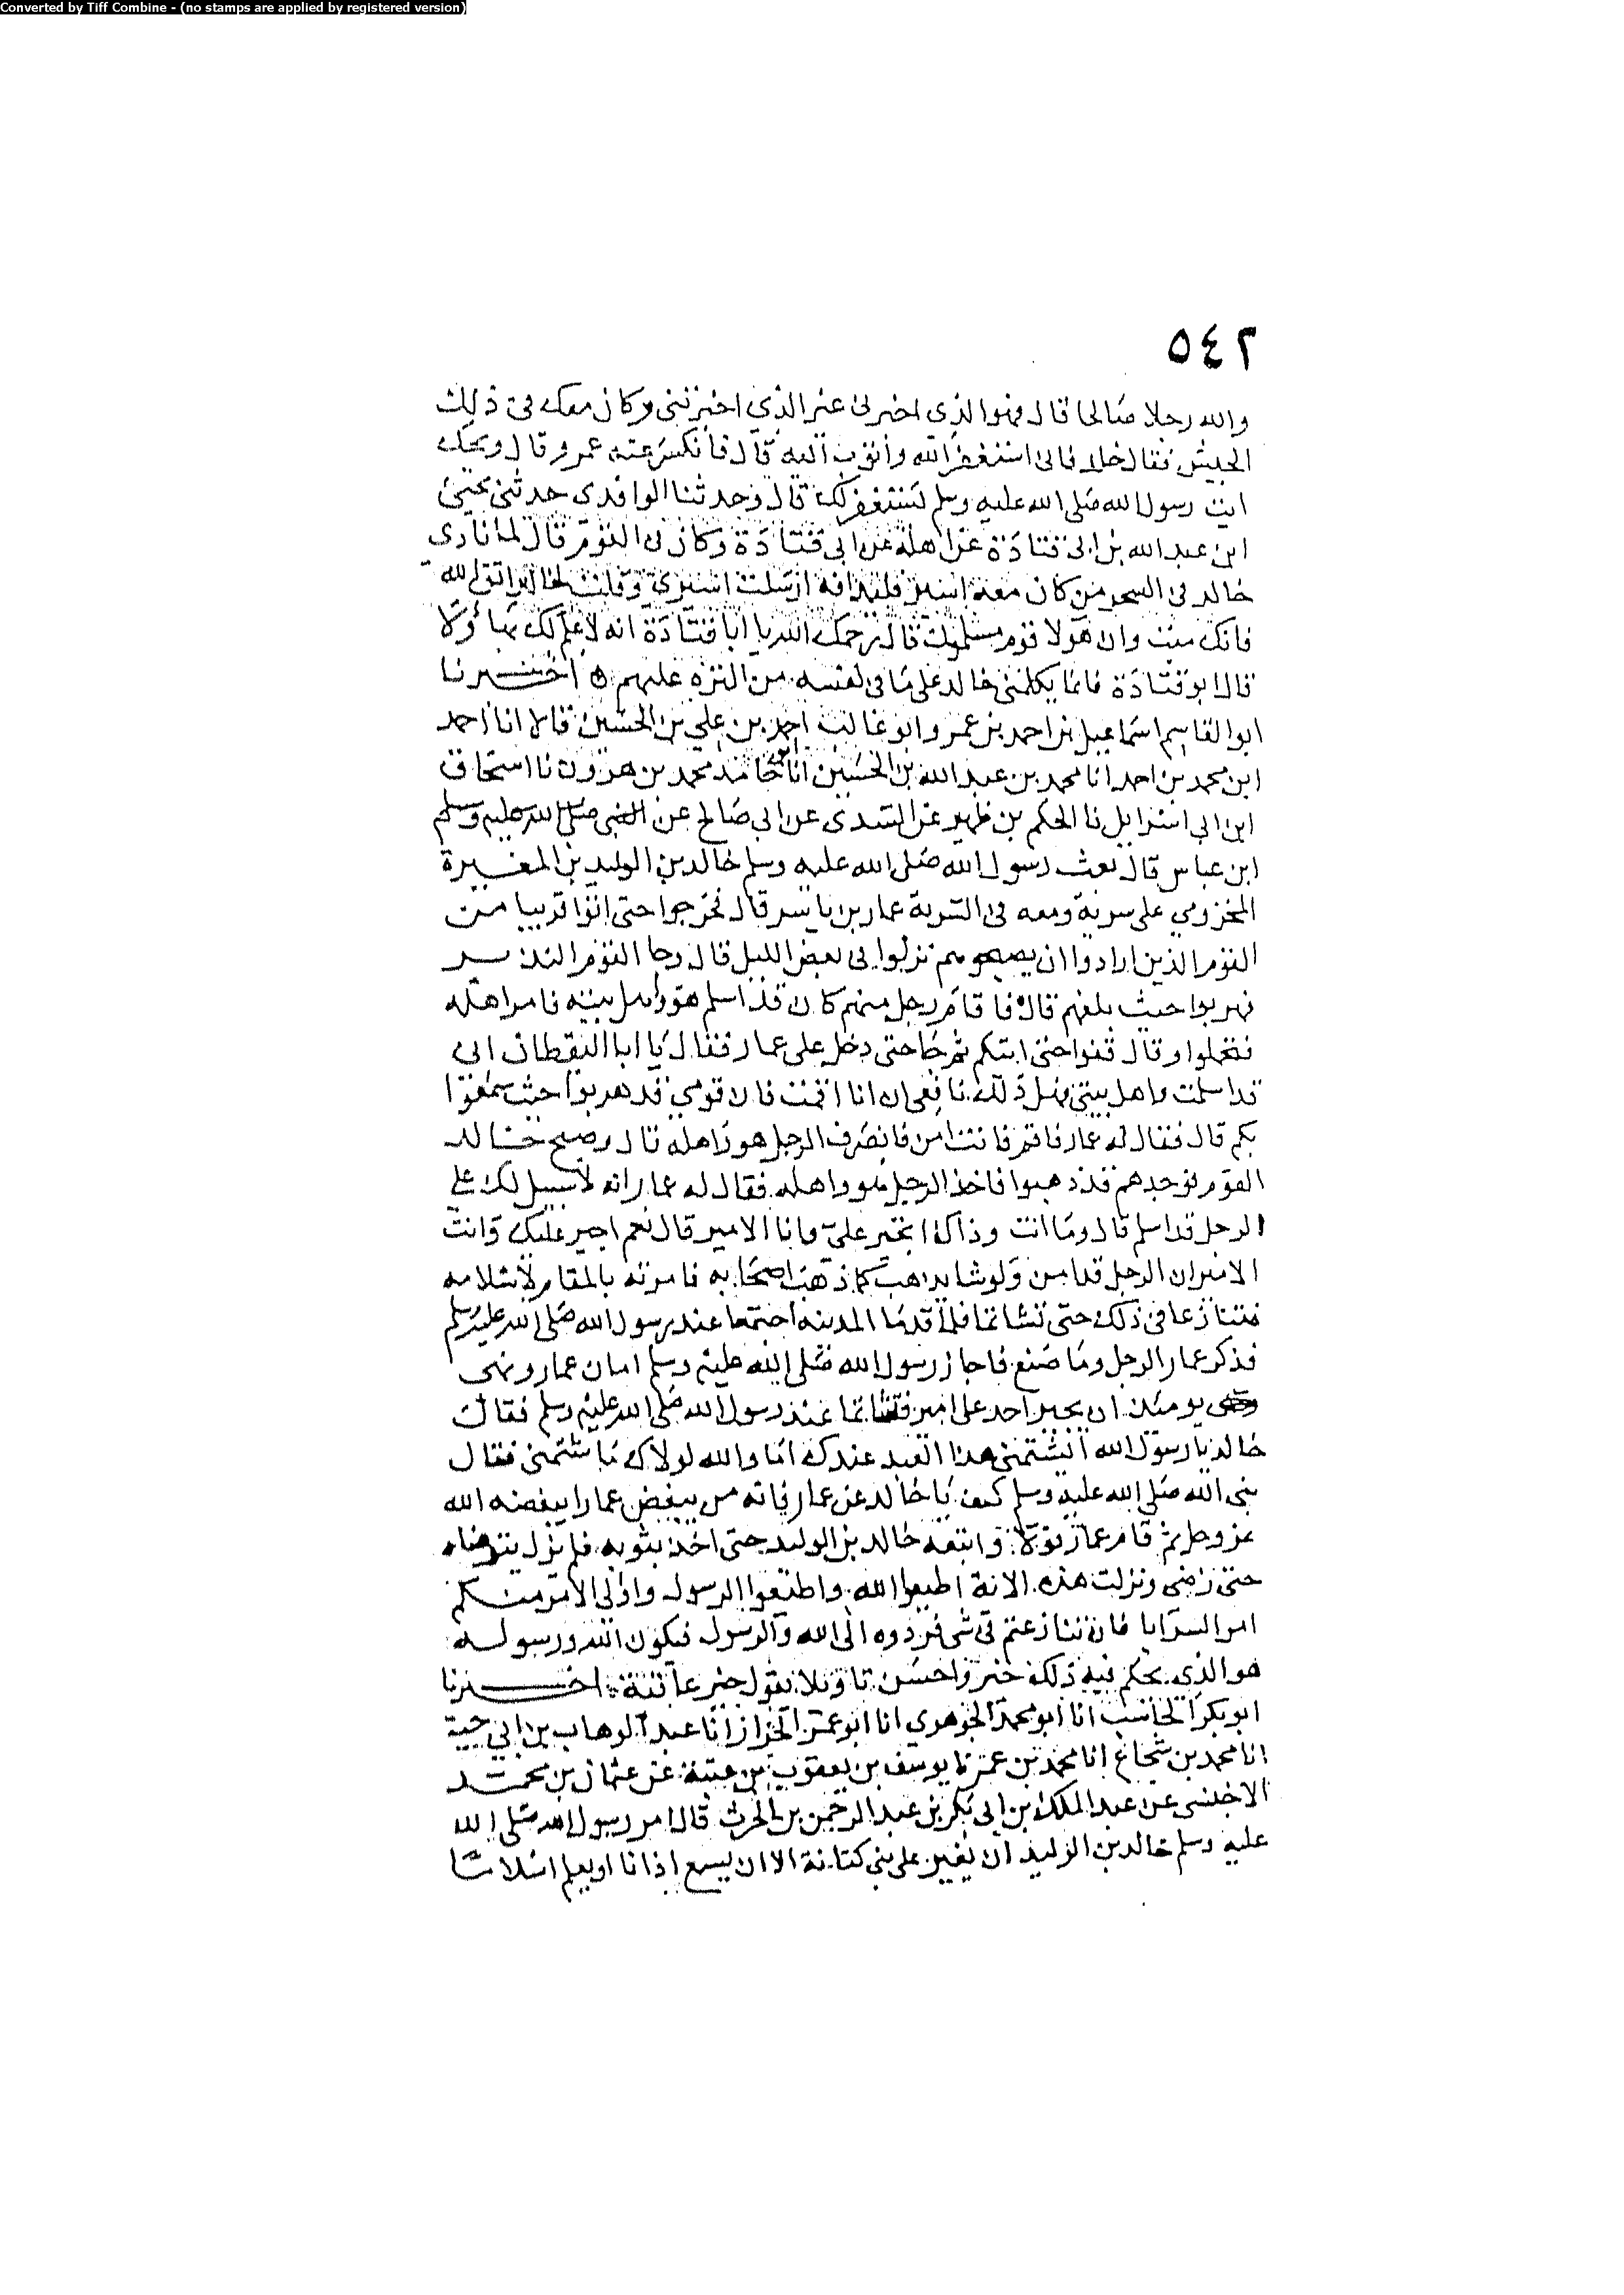 Converted by Tiff Combine - (no stamps are applied by registered version)
٥٤٢
والله رجلا صالحا قال فهو الذي اخبرني غير الذي اخبرتني وكان معك في ذلك
الجيش فقال خالد فاني استغفر الله واتوب اليه قال فانكسر عنه عمر وقال ويحك
ايت رسول الله صلى الله عليه وسلم يستغفر لك قال وحدثنا الواقدي حدثني يحيى
ابن عبد الله بن ابي قتادة عن اهله عن ابي قتادة وكان في القوم قال لما نادى
خالد في السحر من كان معه اسير فليدافه ارسلت اسيري وقلت لخالد اتق الله
فانك ميت وان هولا قوم مسلمون قال يرحمك الله يا ابا قتادة انه لا علم لك بهاولا
قال ابو قتادة فانما يكلمني خالد على ما في نفسه من الترة عليهم ه اخبرنا
ابو القاسم اسماعيل بن احمد بن عمر وابو غالب احمد بن علي بن الحسين قالا انا احمد
ابن محمد بن احمد انا محمد بن عبد الله بن الحسين انا ابو حامد محمد بن هرون نا اسحاق
ابن ابي اسرايل نا الحكم بن ظهير عن السدي عن ابي صالح عن النبي صلى الله عليه وسلم
ابن عباس قال بعث رسول الله صلى الله عليه وسلم خالد بن الوليد بن المغيرة
المخزومي على سرية ومعه في السرية عمار بن ياسر قال فخرجوا حتى اتوا قريبا من
القوم الذين ارادوا ان يصبحوهم نزلوا في بعض الليل قال وجا القوم النذير
فهربوا حيث بلغهم قال فاقام رجل منهم كان قد اسلم هو واهل بيته فامر اهله
فتحملوا وقال قفوا حتى اتيكم ثم جا حتى دخل على عمار فقال يا ابا اليقظان اني
قد اسلمت واهل بيتي فهل ذلك نافعي ان انا اقمت فان قومي قد هربوا حيث سمعوا
بكم قال فقال له عمار فاقم فانت امن فانصرف الرجل هو واهله قال وصبح خالد
القوم فوجدهم قد ذهبوا فاخذ الرجل هو واهله فقال له عمار انه لا سبيل لك على
الرجل قد اسلم قال وما انت وذاك اتجير علي وانا الامير قال نعم اجير عليك وانت
الامير ان الرجل قد امن ولو شا لذهب كما ذهب اصحابه فامرته بالمقام لاسلامه
فتنازعا في ذلك حتى تشاتما فلما قدما المدينه اجتمعا عند رسول الله صلى الله عليه وسلم
فذكر عمار الرجل وما صنع فاجاز رسول الله صلى الله عليه وسلم امان عمار ونهى
يومئذ ان يجير احد على امير فتشاتما عند رسول الله صلى الله عليه وسلم فقال
خالد يا رسول الله ايشتمني هذا العبد عندك اما والله لولاك ما شتمني فقال
نبي الله صلى الله عليه وسلم كف يا خالد عن عمار فانه من يبغض عمارا يبغضه الله
عز وجل ثم قام عمار فولا واتبعه خالد بن الوليد حتى اخذ بثوبه فلم يزل يترضاه
حتى رضي ونزلت هذه الاية اطيعوا الله واطيعوا الرسول واولي الامر منكم
امرا السرايا فان تنازعتم في شي فردوه الى الله والرسول فيكون الله ورسوله
هو الذي يحكم فيه ذلك خير واحسن تاويلا يقول خير عاقبة اخبرنا
ابو بكر الحاسب انا ابو محمد الجوهري انا ابو عمر الخزاز انا عبد الوهاب بن ابي حية
انا محمد بن شجاع انا محمد بن عمر نا يوسف بن يعقوب بن عتبة عن عثمان بن محمد
الاخنسي عن عبد الملك بن ابي بكر بن عبد الرحمن بن الحرث قال امر رسول الله صلى الله
عليه وسلم خالد بن الوليد ان يغير على بني كنانة الا ان يسمع اذانا او يعلم اسلاما